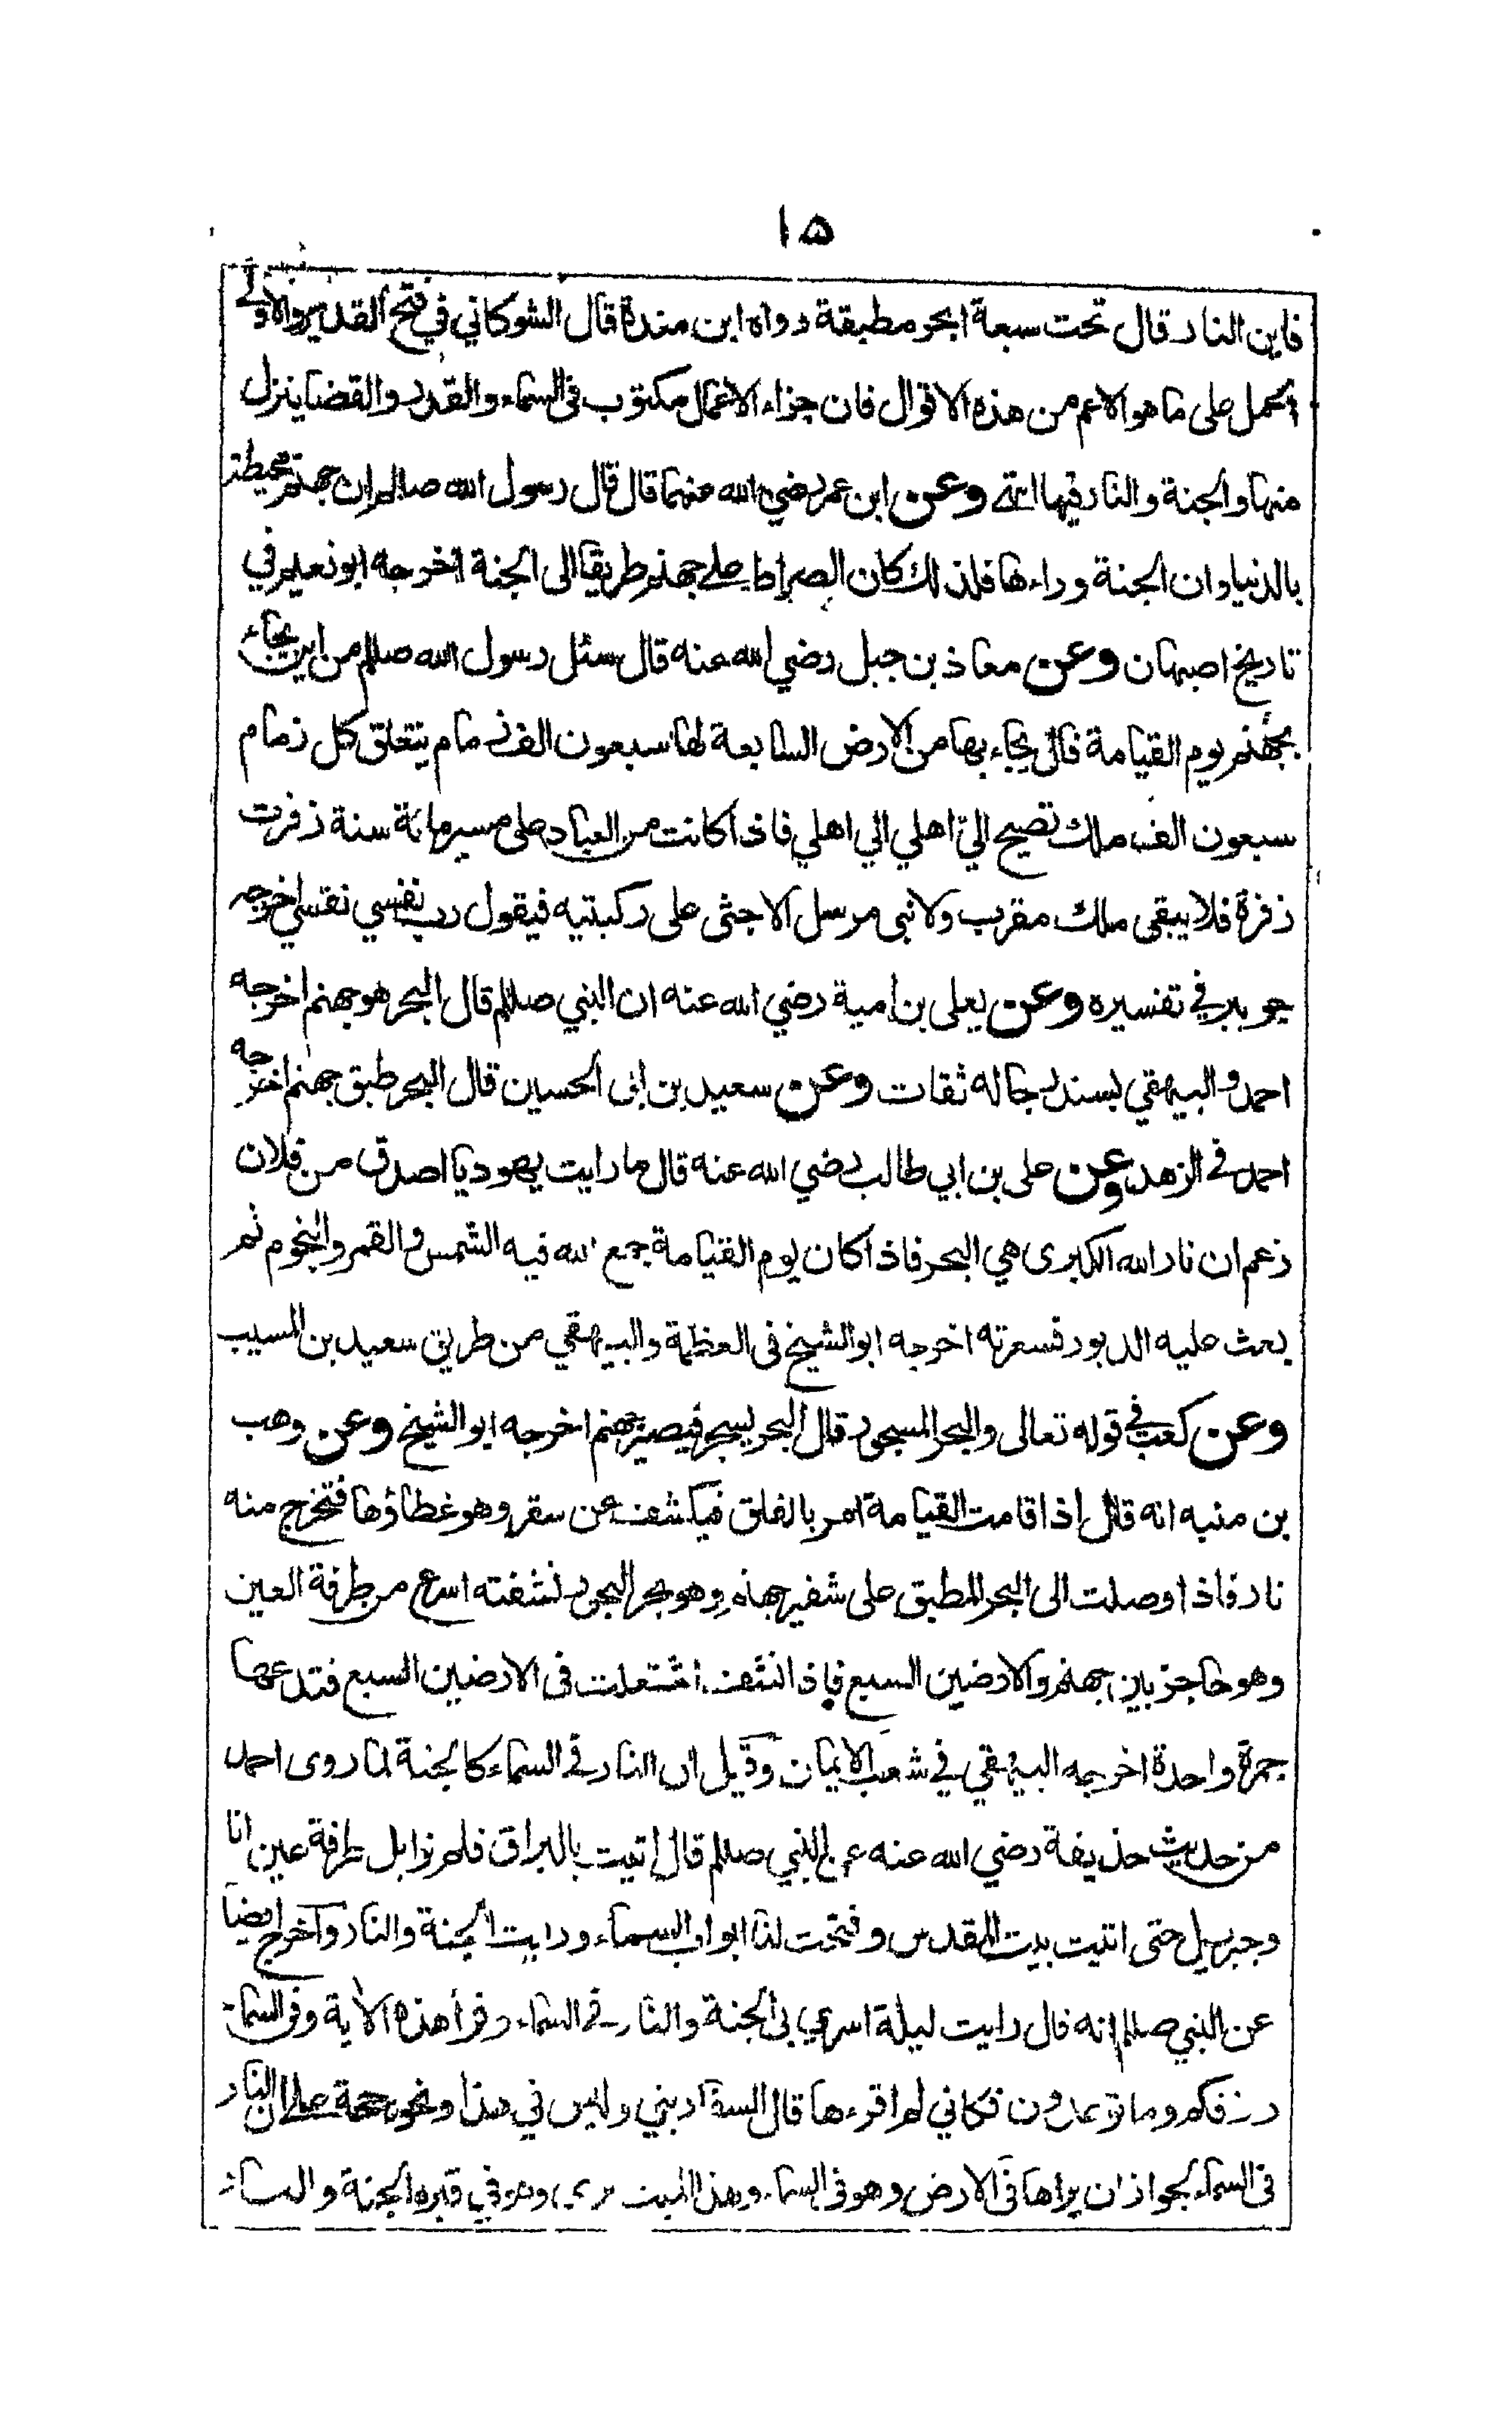 ١٥
فاين النار قال تحت سبعة ابحر مطبقة رواه ابن مندة قال الشوكاني في فتح القدير والاولى
الحمل على ما هو الاعم من هذه الاقوال فان جزاء الاعمال مكتوب في السماء والقدر والقضا ينزل
منها والجنة والنار فيها انتهى وعن ابن عمر رضي الله عنهما قال قال رسول الله صللم ان جهنم محيطة
بالدنيا وان الجنة وراءها فلذلك كان الصراط على جهنم طريقا الى الجنة اخرجه ابو نعيم في
تاريخ اصبهان وعن معاذ بن جبل رضي الله عنه قال سئل رسول الله صللم من اين يجاء
بجهنم يوم القيامة قال يجاء بها من الارض السابعة لها سبعون الف زمام يتعلق كل زمام
سبعون الف ملك تصيح الي اهلي الي اهلي فاذا كانت من العباد على مسير مائة سنة زفرت
زفرة فلا يبقى ملك مقرب ولا نبى مرسل الا جثى على ركبتيه فيقول رب نفسي نفسي اخرجه
جويبر في تفسيره وعن يعلى بن امية رضي الله عنه ان النبي صللم قال البحر هو جهنم اخرجه
احمد والبيهقي بسند رجاله ثقات وعن سعيد بن ابى الحسين قال البحر طبق جهنم اخرجه
احمد في الزهد وعن على بن ابي طالب رضي الله عنه قال ما رايت يهوديا اصدق من فلان
زعم ان نار الله الكبرى هي البحر فاذا كان يوم القيامة جمع الله فيه الشمس والقمر والنجوم ثم
بعث عليه الدبور فسعرته اخرجه ابو الشيخ فى العظمة والبيهقي من طريق سعيد بن المسيب
وعن كعب في قوله تعالى والبحر المسجور قال البحر يسجر فيصير جهنم اخرجه ابو الشيخ وعن وهب
بن منبه انه قال اذا قامت القيامة امر بالفلق فيكشف عن سقر وهو غطاؤها فتخرج منه
نار فاذا وصلت الى البحر المطبق على شفير جهنم وهو بحر البحور نشفته اسرع من طرفة العين
وهو حاجز بين جهنم والارضين السبع فاذا نشفت اشتعلت فى الارضين السبع فتدعها
جمرة واحدة اخرجه البيهقي في شعب الايمان وقيل ان النار في السماء كالجنة لما روى احمد
من حديث حذيفة رضي الله عنه عن النبي صللم قال اتيت بالبراق فلم نزايل طرفة عين انا
وجبريل حتى اتيت بيت المقدس وفتحت لنا ابواب السماء ورايت الجنة والنار واخرج ايضا
عن النبي صللم انه قال رايت ليلة اسري بى الجنة والنار في السماء وقرأ هذه الأية وفى السماء
رزقكم وما توعدون فكاني لم اقرءها قال السفاريني وليس في هذا ونحوه حجة على ان النار
فى السماء لجواز ان يراها في الارض وهو فى السماء وهذا الميت يرى وهو في قبره الجنة والنار